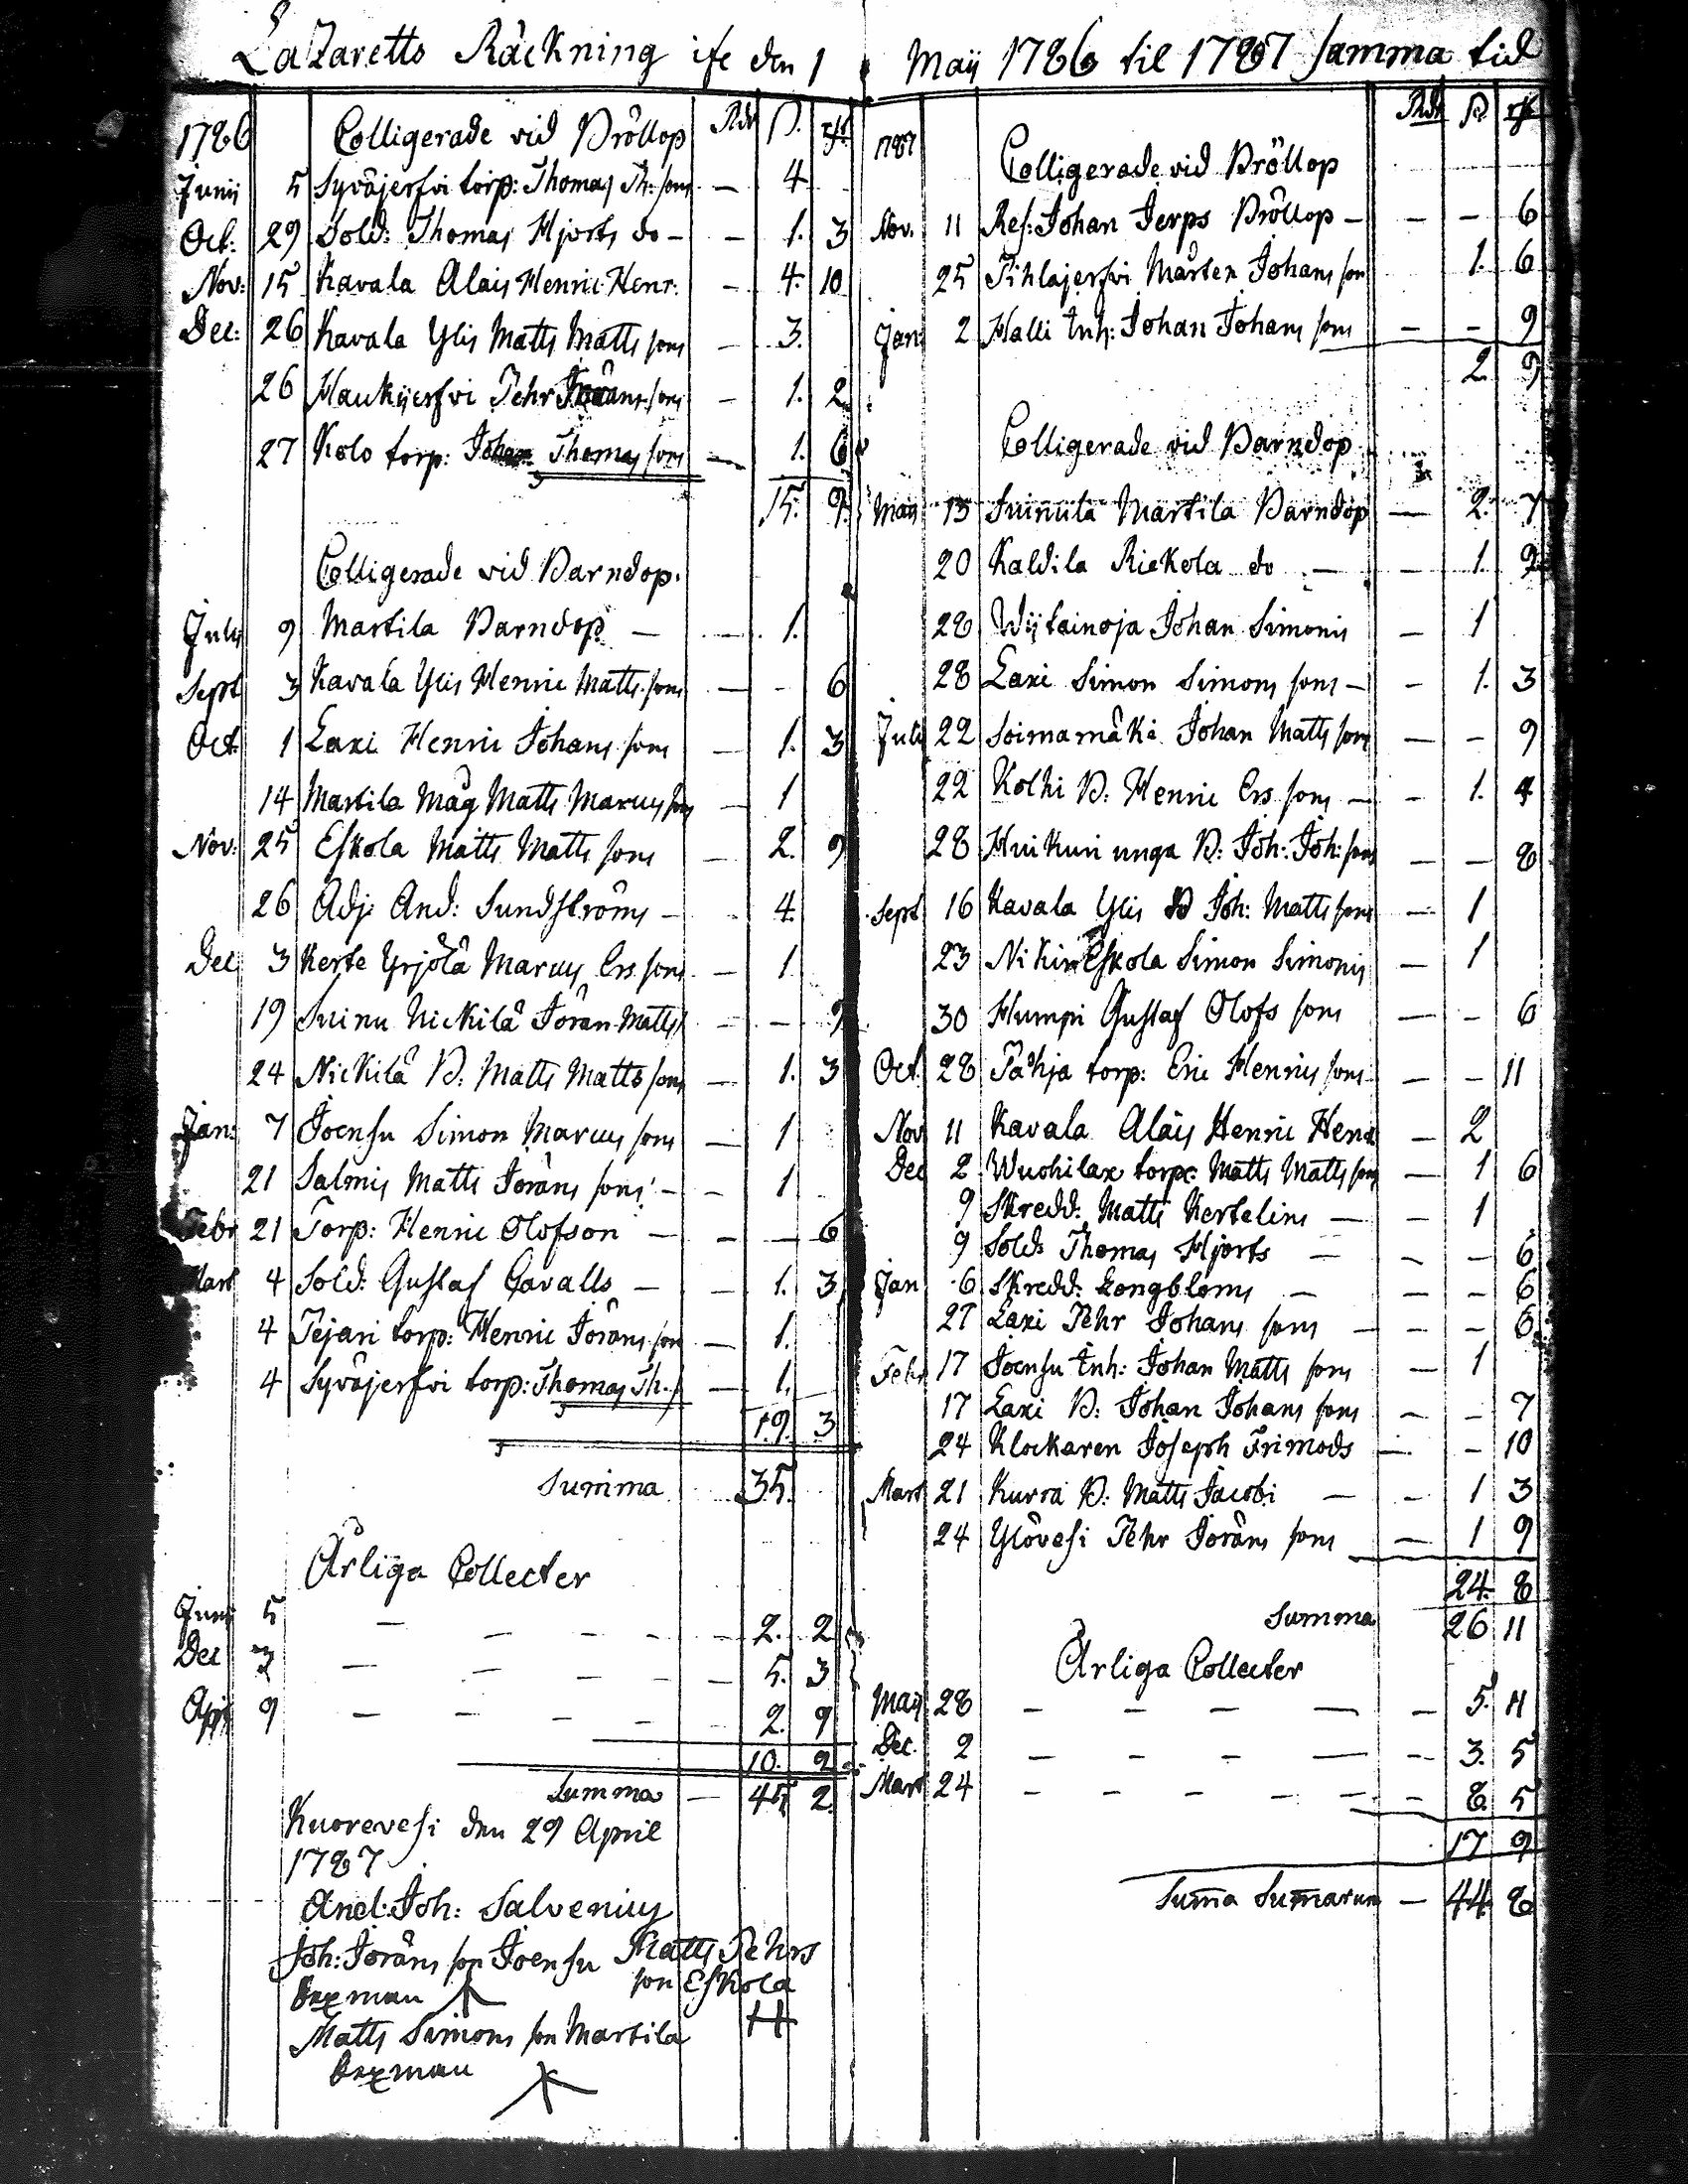 Lazaretts Räckning ifr den 1 Maij 1786 til 1787 samma tid
1786 Colligerade vid Bröllop Rdr ß. rst
Junij 5 Syväjerfvi torp: Thomas Th: sons — 4
Oct: 29 Sold: Thomas Hjorts do — — 1. 3
Nov: 15 Kavala Alais Henric Henr: — 4. 10
Dec: 26 Kavala Ylis Matts Matts sons — 3.
26 Haukijerfvi Pehr Jöran sons — 1. 2
27 Kolo torp: Johan Thomas sons — 1. 6
15. 9.
Colligerade vid Barndop.
Julij 9 Martila Barndop — — 1.
Sept 3 Kavala Ylis Henric Matts sons — - 6
Oct. 1 Laxi Henric Johans sons — 1. 3
14 Martila Måg Matts Marcus sons — 1
Nov: 25 Eskola Matts Matts sons — 2. 9
26 Adj: And: Sundströms — - 4.
Dec 3 Kerte Yrjölä Marcus Ers sons — 1
19 Suinu Nickilä Jöran Matts s — — 9
24 Nickilä B: Matts Matts sons — 1. 3
Jan: 7 Joensu Simon Marcus sons — 1
21 Salmis Matts Jörans sons — - 1
Febr 21 Torp: Henric Olofson — - — 6
Mart 4 Sold: Gustaf Cavalls — — 1. 3
4 Pejari torp: Henric Jörans son — 1.
4 Syväjerfvi torp: Thomas Th. s — 1.
19. 3
Summa 35.
Årliga Collecter
Junij 5 — — — - — 2. 2
Dec 3 — — — - — 5. 3
Apr 9 — — — — - 2. 9
10. 2
Summa — 45 2
Kuorevesi den 29 April
1787
And: Joh: Salvenius
Joh: Jörans son Joensu Matts Pehrs
sexman son Eskola
Matts Simons son Martila
sexman
1787 Rdr ß rst
Colligerade vid Bröllop
Nov. 11 Res: Johan Jerps Bröllop — — — 6
25 Pihlajerfvi Mårten Johans son 1. 6
Jan: 2 Halli Inh: Johan Johans sons — — 9
2. 9
Colligerade vid Barndop
Maij 13 Suinula Martila Barndop — 2. 7
20 Kaldila Rickola do — — 1. 9
28 Wijtainoja Johan Simonis — 1
28 Laxi Simon Simons sons — - 1. 3
Julij 22 Soimamäki Johan Matts sons — - 9
22 Kolhi B: Henric Ers sons — - 1. 4
28 Huikuri unga B: Joh: Joh: sons — — 8
Sept 16 Kavala Ylis B Joh: Matts sons — 1
23 Nikin Eskola Simon Simonis — 1
30 Humpi Gustaf Olofs sons — - 6
Oct. 28 Pähja torp: Eric Henrics sons — — 11
Nov 11 Kavala Alais Henric Henr — 2
Dec 2 Wuohilax torp: Matts Matts son — 1 6
9 Skredd: Matts Kertelins — - 1
9 Sold: Thomas Hjorts — - — 6
Jan 6 Skredd: Longbloms — — — 6
27 Laxi Pehr Johans sons — - — 6
Febr 17 Joensu Inh: Johan Matts sons — 1
17 Laxi B: Johan Johans sons — - 7
24 Klockaren Joseph Frimods — - 10
Mart 21 Kurra B: Matts Jacobi — - 1 3
24 Ylövesi Pehr Jörans sons — 1 9
24. 8
Summa 26 11
Årliga Collecter
Maij 28 — — — — — 5. 11
Dec. 2 — — — — — 3. 5
Mart 24 — — — — — 8. 5
17 9
Suma Sumarum — 44 8